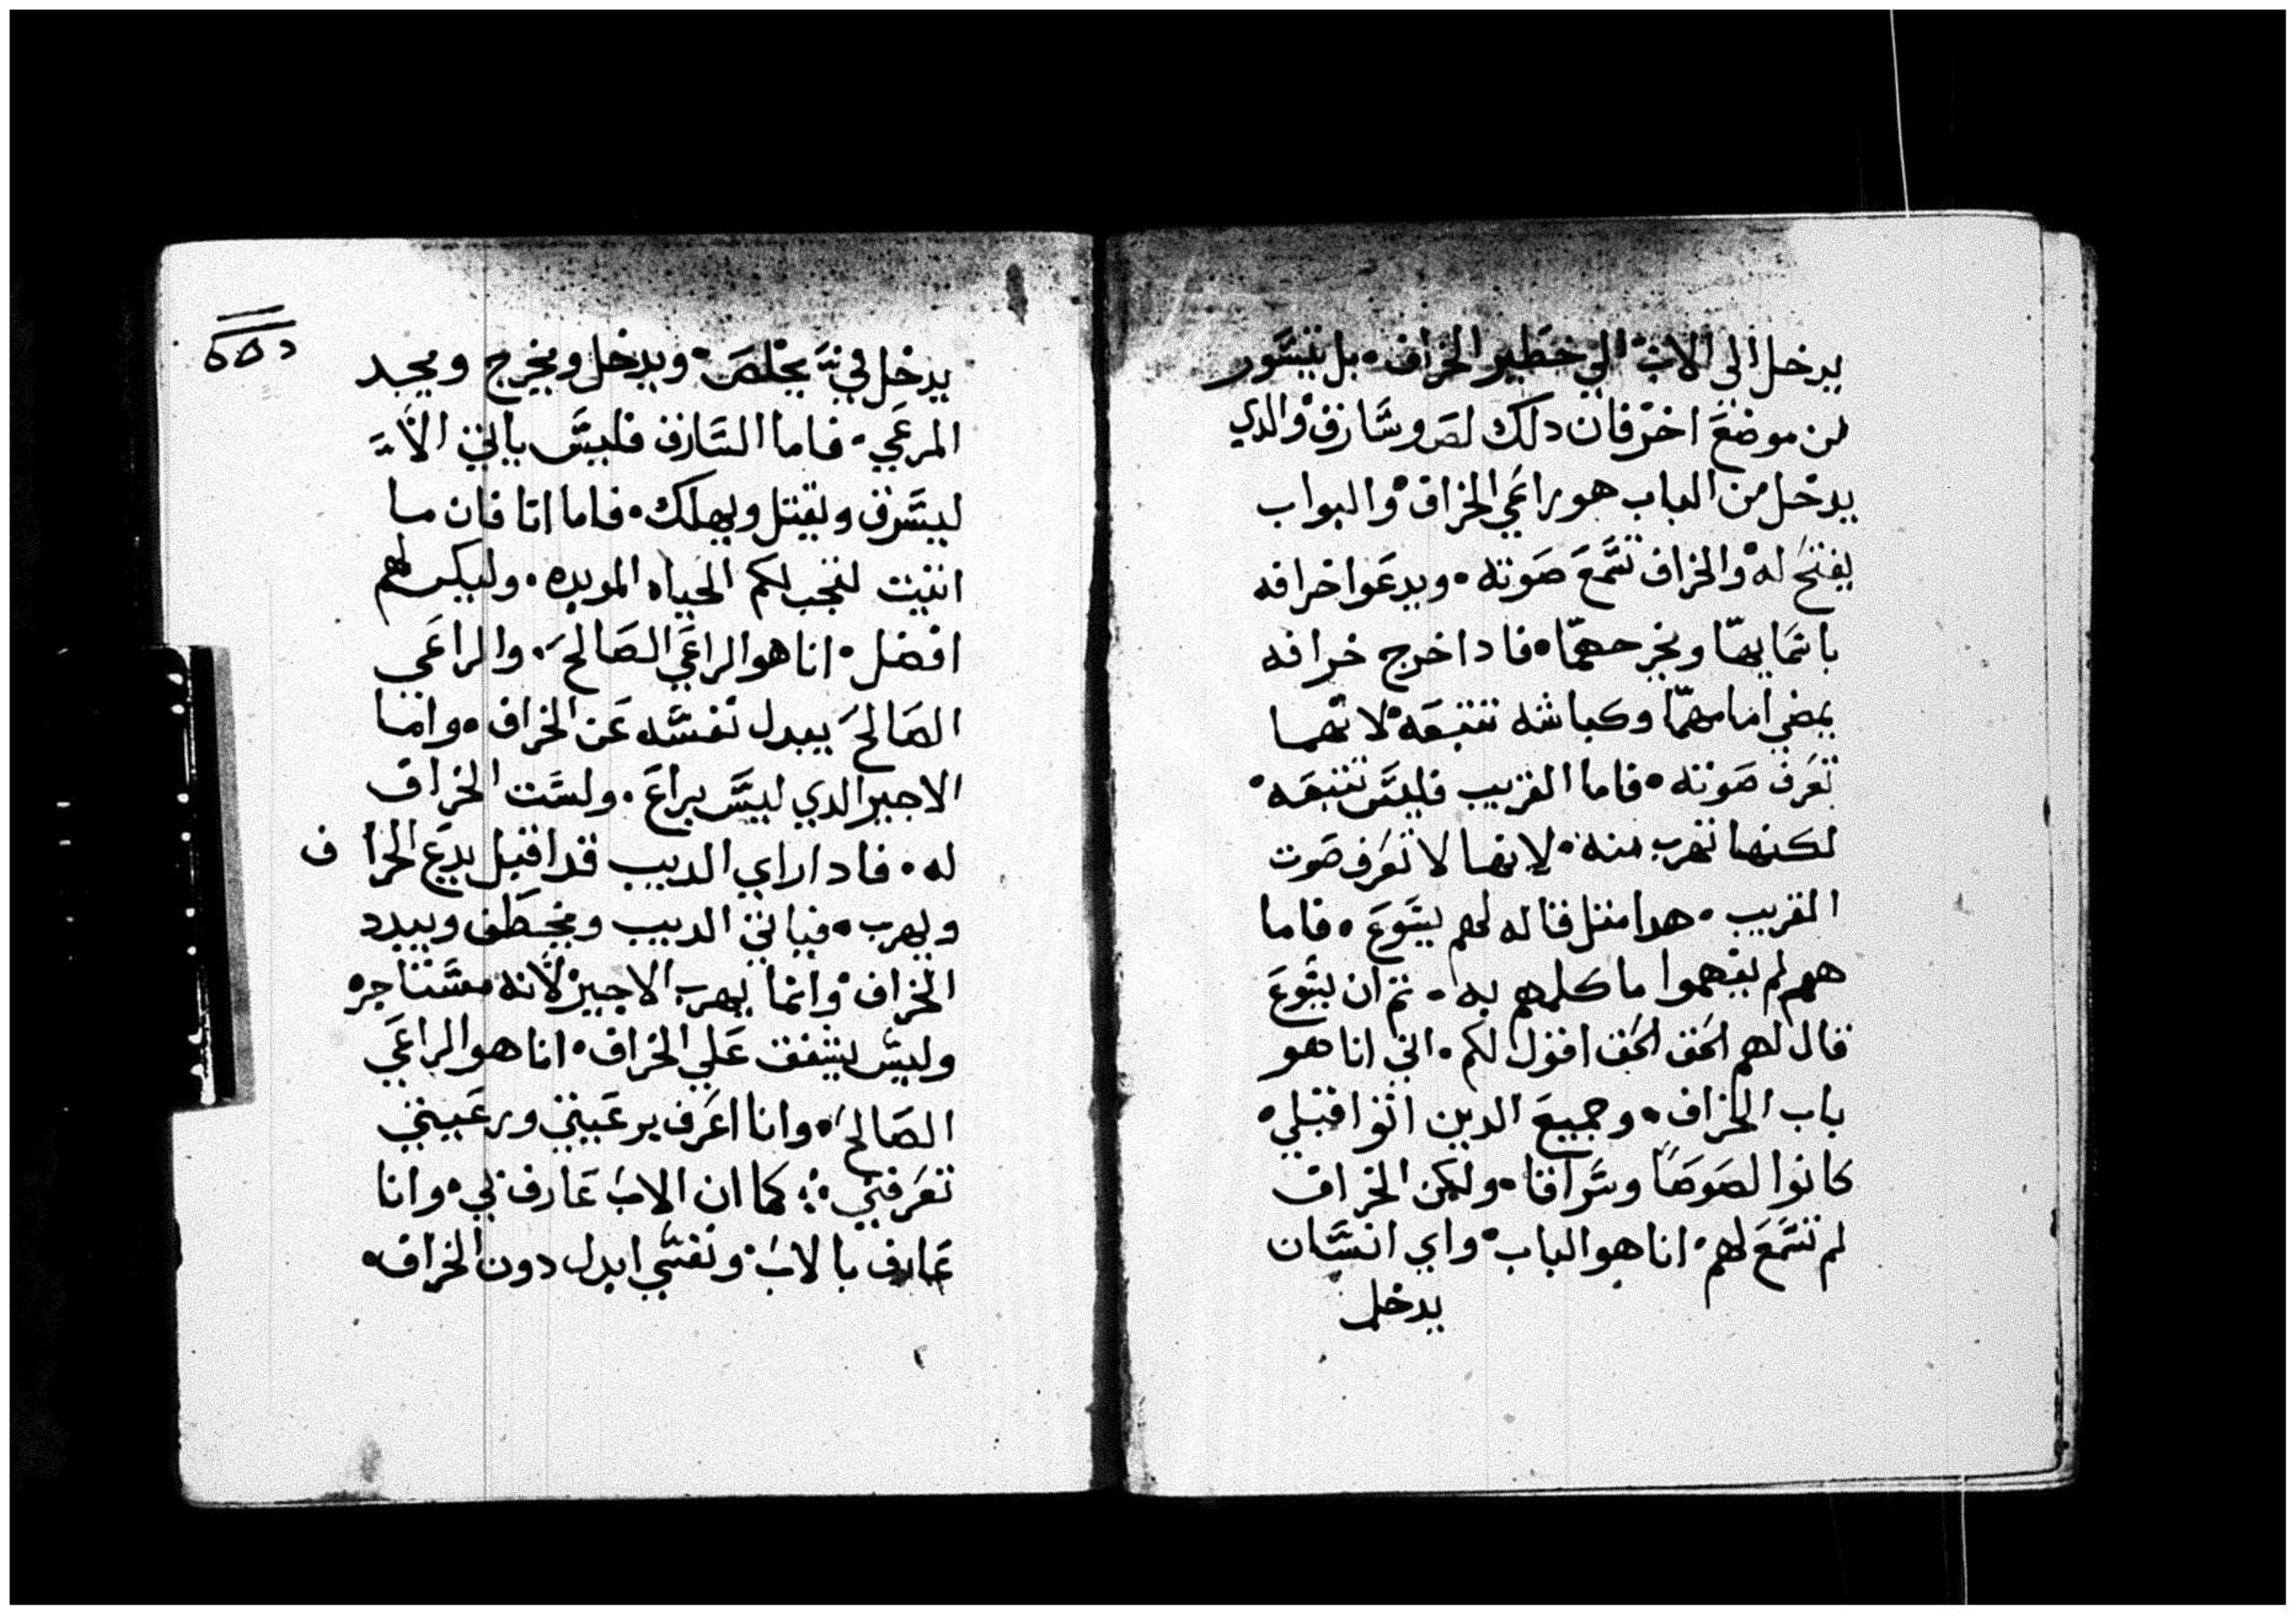 يدخل الي الاب الي حظير الخراف۰ بل يتسور
من موضع اخر فان دلك لص وسارق والدي
يدخل من الباب هو راعي الخراف والبواب
يفتح له والخراف تسمع صوته۰ ويدعوا خرافه
باسمايها ويخرجهما۰ فادا اخرج خرافه
يمضي امامهما وكباشه تتبعه لانهما
تعرف صوته۰ فاما الغريب فليس تتبعه۰
لكنها تهرب منه۰ لانها لا تعرف صوت
الغريب۰ هدا مثل قاله لهم يسوع۰ فاما
هم لم يفهموا ما كلمهم به۰ ثم ان يسوع
قال لهم الحق الحق اقول لكم۰ اني انا هو
باب الخراف۰ وجميع الدين اتوا قبلي۰
كانوا لصوصا وسراقا۰ ولكن الخراف
لم تسمع لهم۰ انا هو الباب۰ واي انسان
يدخل
يدخل في يخلص۰ ويدخل ويخرج ويجد
المرعي۰ فاما السارق فليس ياتي الا
ليسرق ويقتل ويهلك۰ فاما انا فان ما
اتيت لتجب لكم الحياه الموبده۰ وليكن لهم
افضل۰ انا هو الراعي الصالح۰ والراعي
الصالح يبدل نفسه عن الخراف۰ واما
الاجير الدي ليس براع۰ ولست الخراف
له۰ فادا راي الديب قد اقبل يدع الخراف
ويهرب۰ فياتي الديب ويخطف ويبدد
الخراف۰ وانما يهرب الاجير لانه مستاجره
وليس يشفق علي الخراف۰ انا هو الراعي
الصالح۰ وانا اعرف برعيتي ورعيتي
تعرفني۰ كما ان الاب عارف بي۰ وانا
عارف بالاب۰ ونفسي ابدل دون الخراف۰